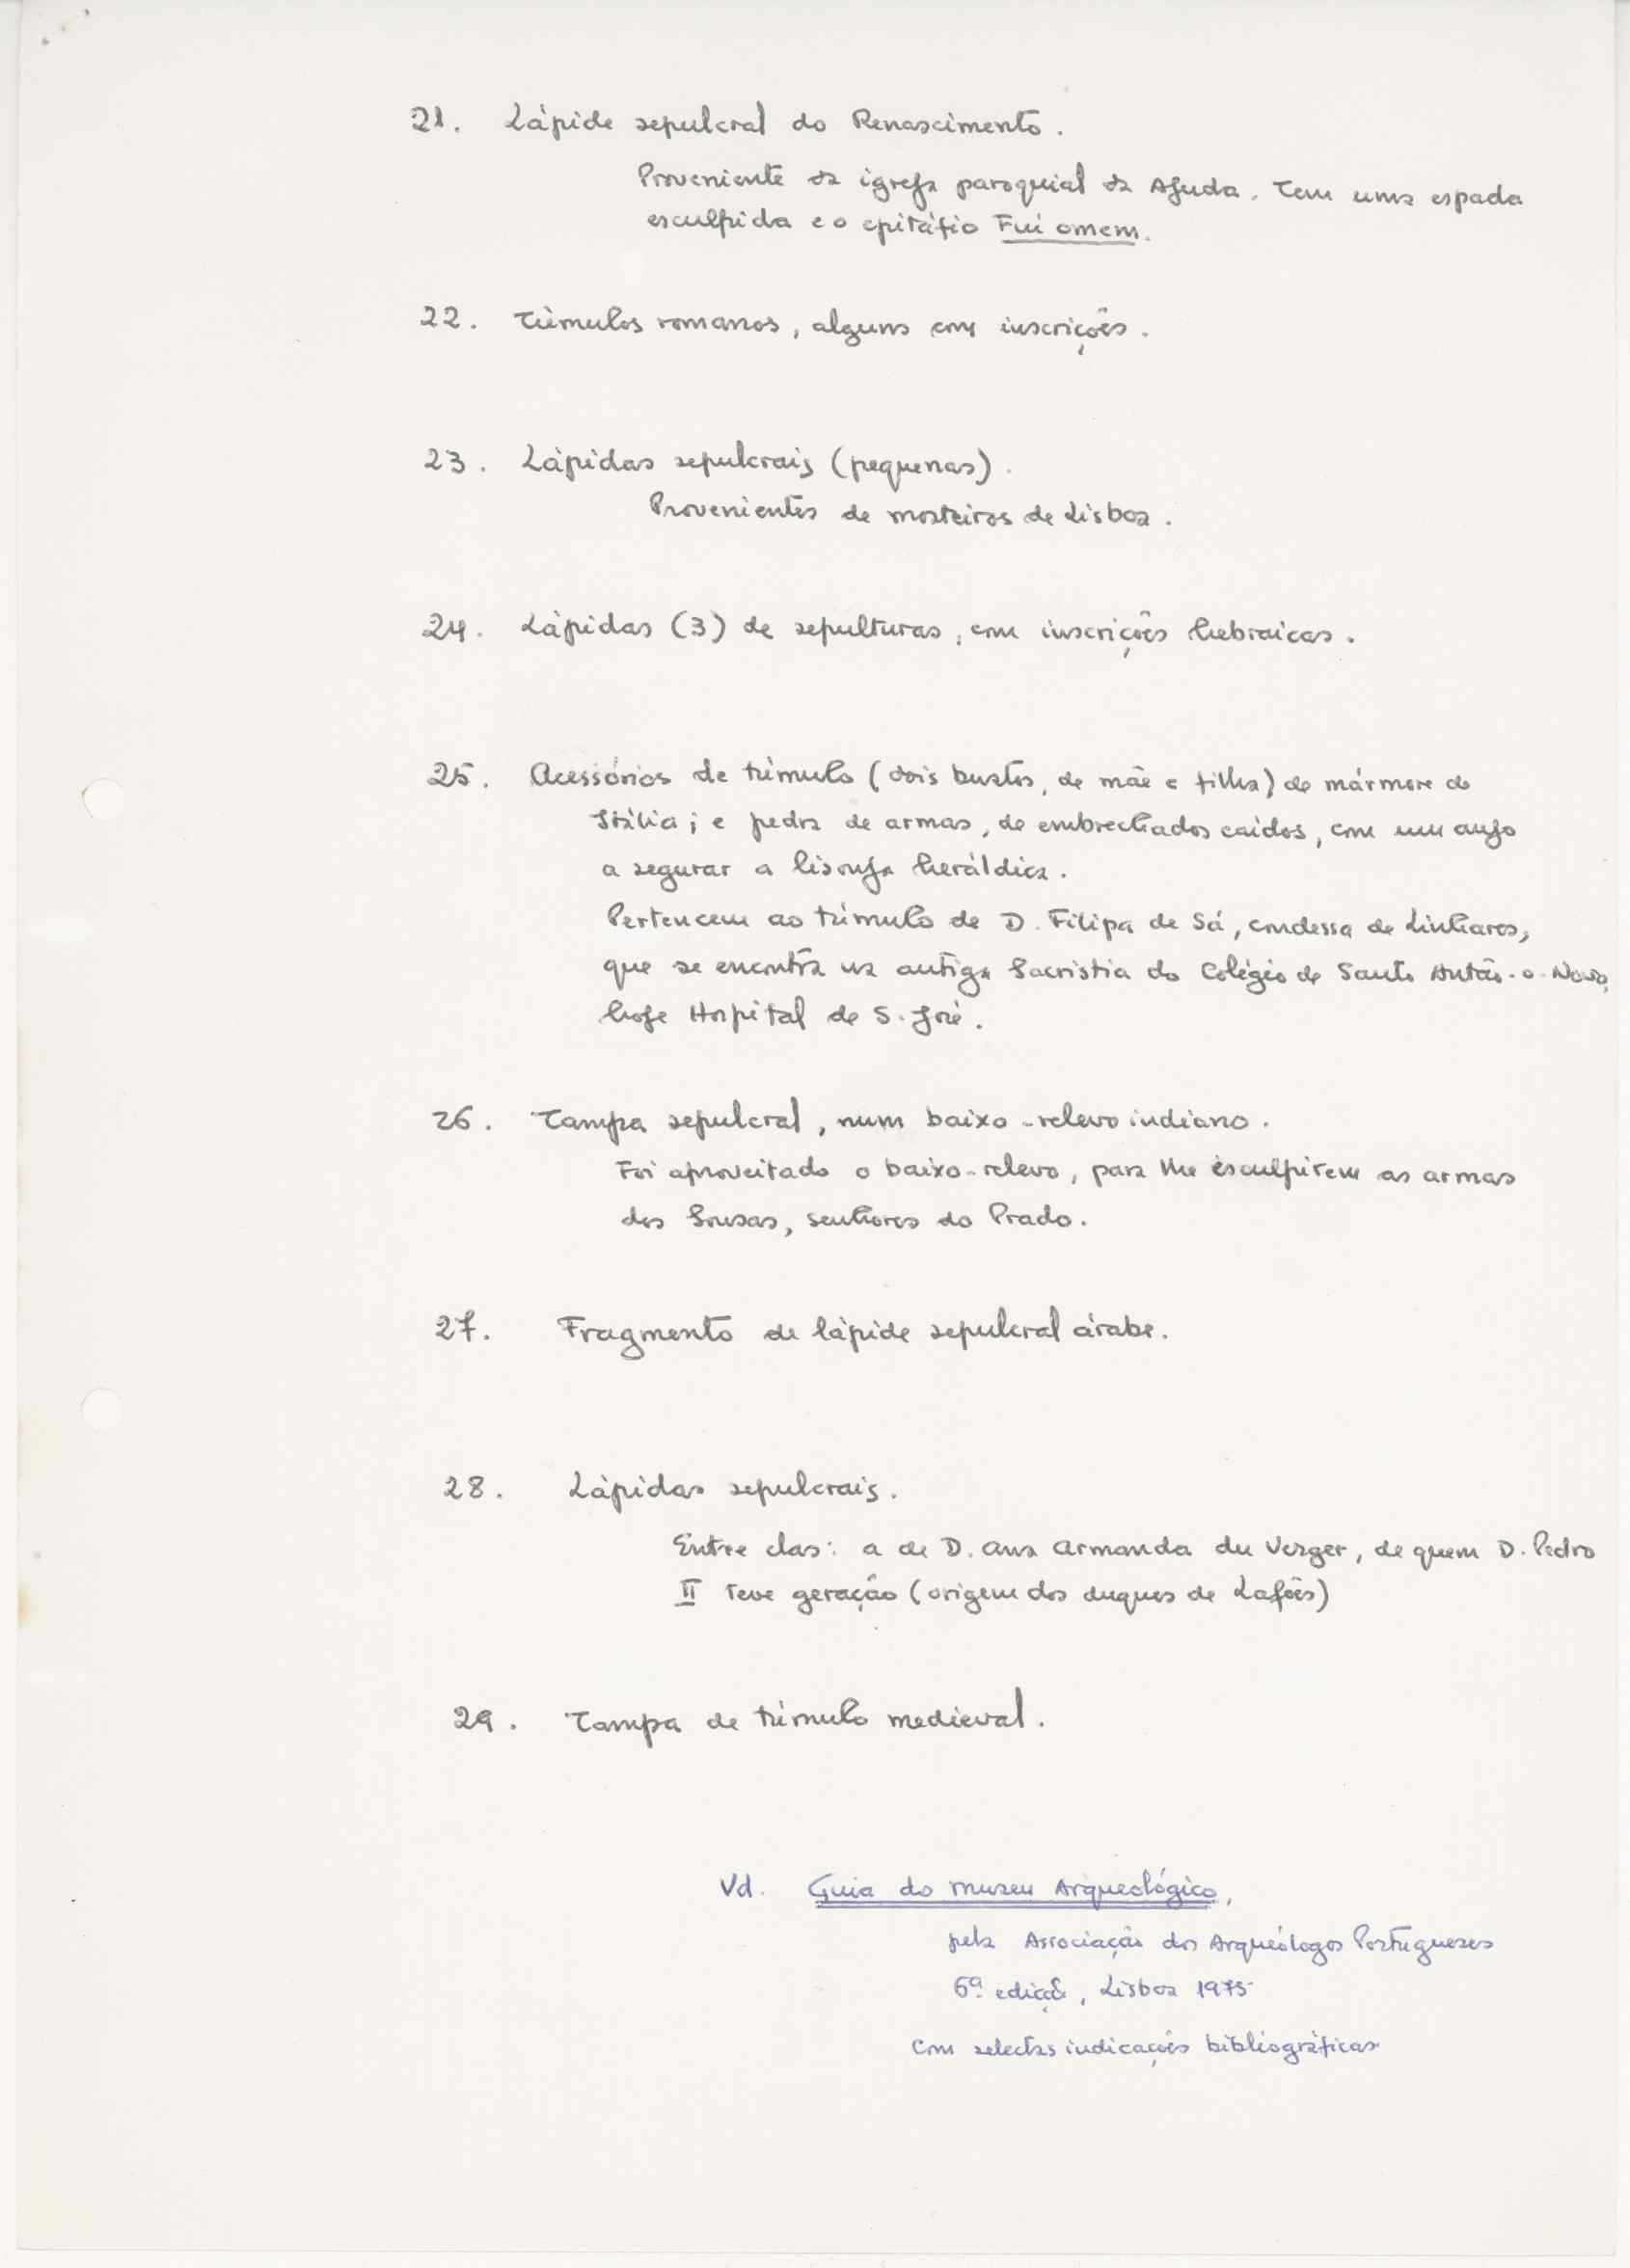 21. Lápide sepulcral do Renascimento.
Proveniente da igreja paroquial da Ajuda. Tem uma espada
esculpida e o epitáfio Fui omem.
22. Túmulos romanos, alguns com inscrições.
23. Lápidas sepulcrais (pequenas).
Provenientes de mosteiros de Lisboa.
24. Lápidas (3) de sepulturas, com inscrições hebraicas.
25. Acessórios de túmulo (dois bustos, de mãe e filha) de mármore de
Itália; e pedra de armas, de embrechados caídos, com um anjo
a segurar a lisonja heráldica.
Pertencem ao túmulo de D. Filipa de Sá, condessa de Linhares,
que se encontra na antiga Sacristia do Colégio de Santo Antão-o-Novo,
hoje Hospital de S. José.
26. Tampa sepulcral, num baixo-relevo indiano.
Foi aproveitado o baixo-relevo, para lhe esculpirem as armas
dos Sousas, senhores do Prado.
27. Fragmento de lápide sepulcral árabe.
28. Lápidas sepulcrais.
Entre elas: a de D. Ana Armanda du Verger, de quem D. Pedro
II teve geração (origem dos duques de Lafões)
29. Tampa de túmulo medieval.
Vd. Guia do Museu Arqueológico,
pela Associação dos Arqueólogos Portugueses
6ª edição, Lisboa 1975
Com selectas indicações bibliográficas